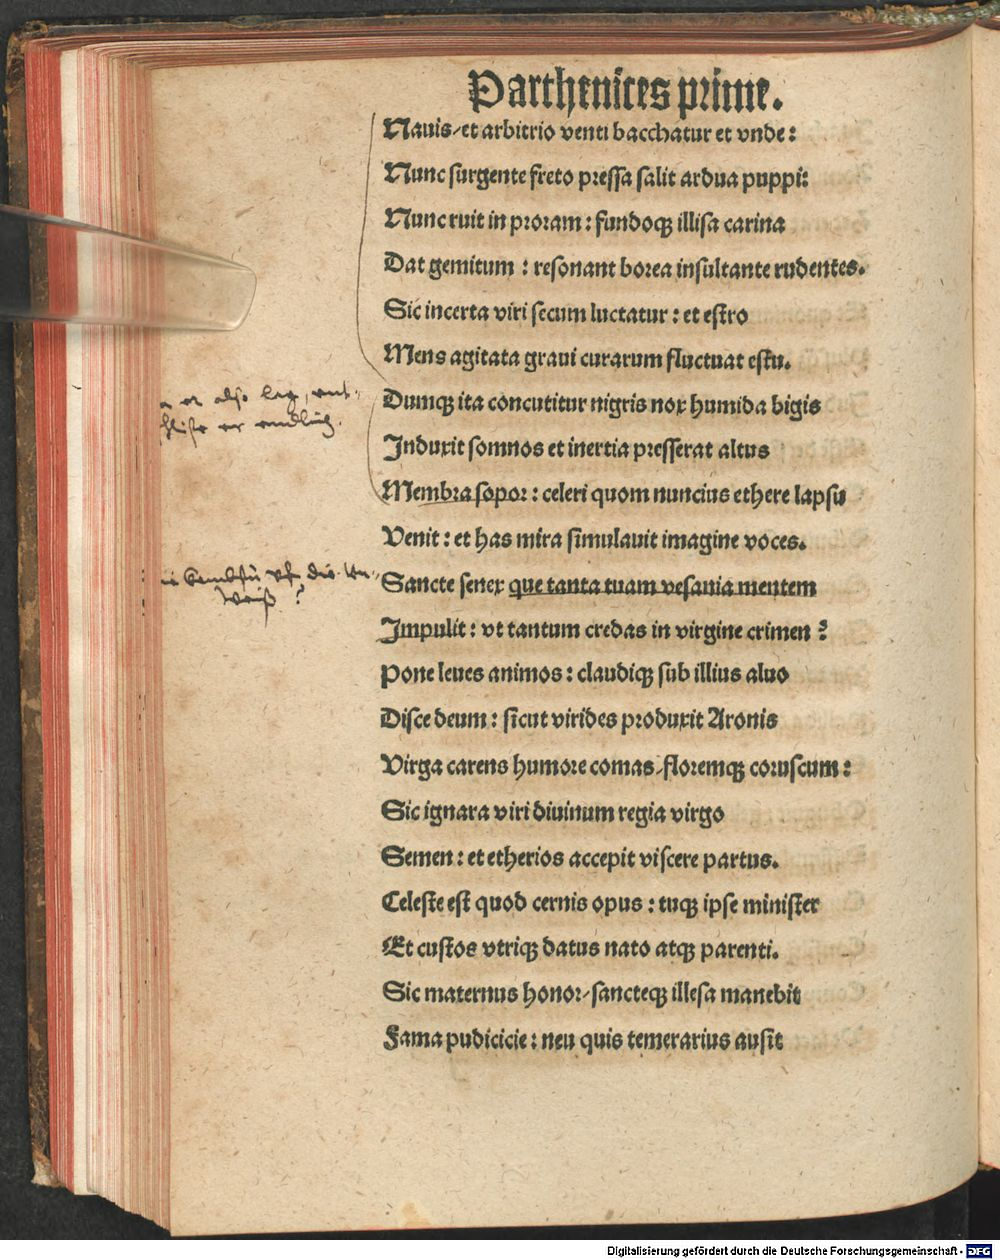 Parthenices prime.
Nauis/et arbitrio venti bacchatur et vnde:
Nunc surgente freto pressa salit ardua puppi:
Nunc ruit in proram: fundoqꝫ illisa carina
Dat gemitum: resonant borea insultante rudentes.
Sic incerta viri secum luctatur: et estro
Mens agitata graui curarum fluctuat estu.
Dumqꝫ ita concutitur nigris nox humida bigis
Induxit somnos et inertia presserat altus
Membra sopor: celeri quom nuncius ethere lapsu
Venit: et has mira simulauit imagine voces.
Sancte senex que tanta tuam vesania mentem
Impulit: vt tantum credas in virgine crimen?
Pone leues animos: claudiqꝫ sub illius aluo
Disce deum: sicut virides produxit Aronis
Virga carens humore comas/floremqꝫ coruscum:
Sic ignara viri diuinum regia virgo
Semen: et etherios accepit viscere partus.
Celeste est quod cernis opus: tuqꝫ ipse minister
Et custos vtriqꝫ datus nato atqꝫ parenti.
Sic maternus honor/sancteqꝫ illesa manebit
Fama pudicicie: neu quis temerarius ausit
er also lag,
er endlich.
die
Digitalisierung gefördert durch die Deutsche Forschungsgemeinschaft - DFG